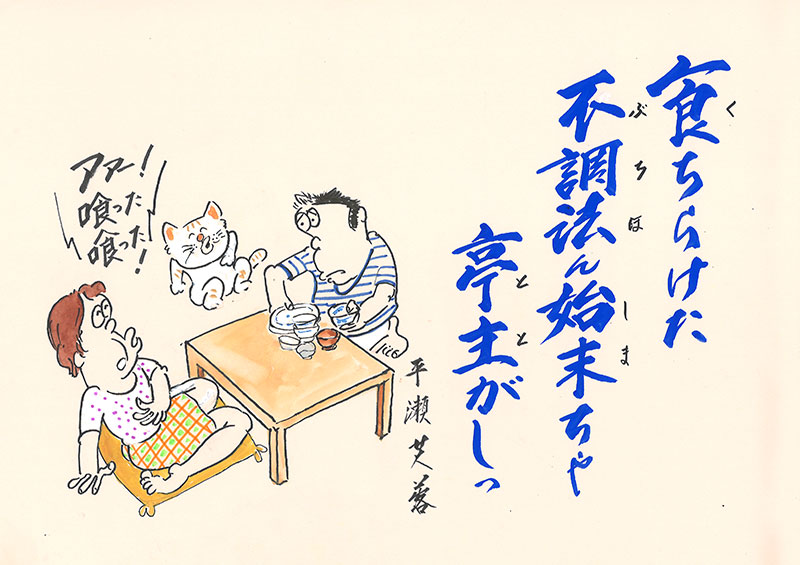 食ちらけた
不調法ん始末ちゃ
亭主がしっ
く
ぶちほ
しま
とと
アアー!
喰った
喰った!
平瀬芙蓉